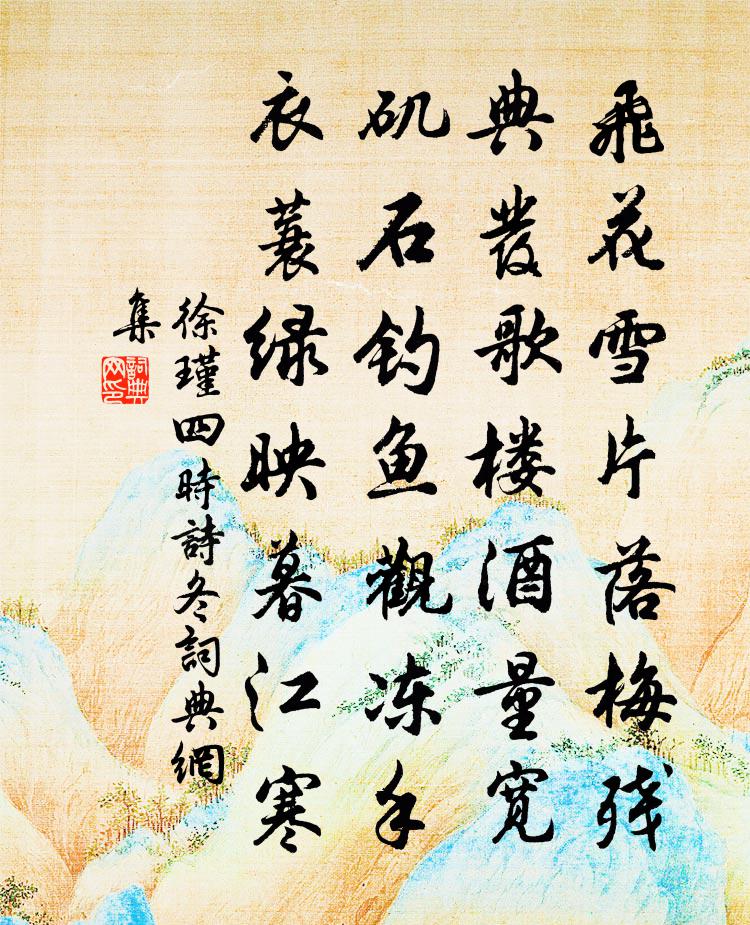 飛花雪片落梅残
典發歌楼酒量寬
矶石钓鱼觀冻手
衣蓑绿映暮江寒
徐瑾四時詩冬詞典網
集
詞典
网印